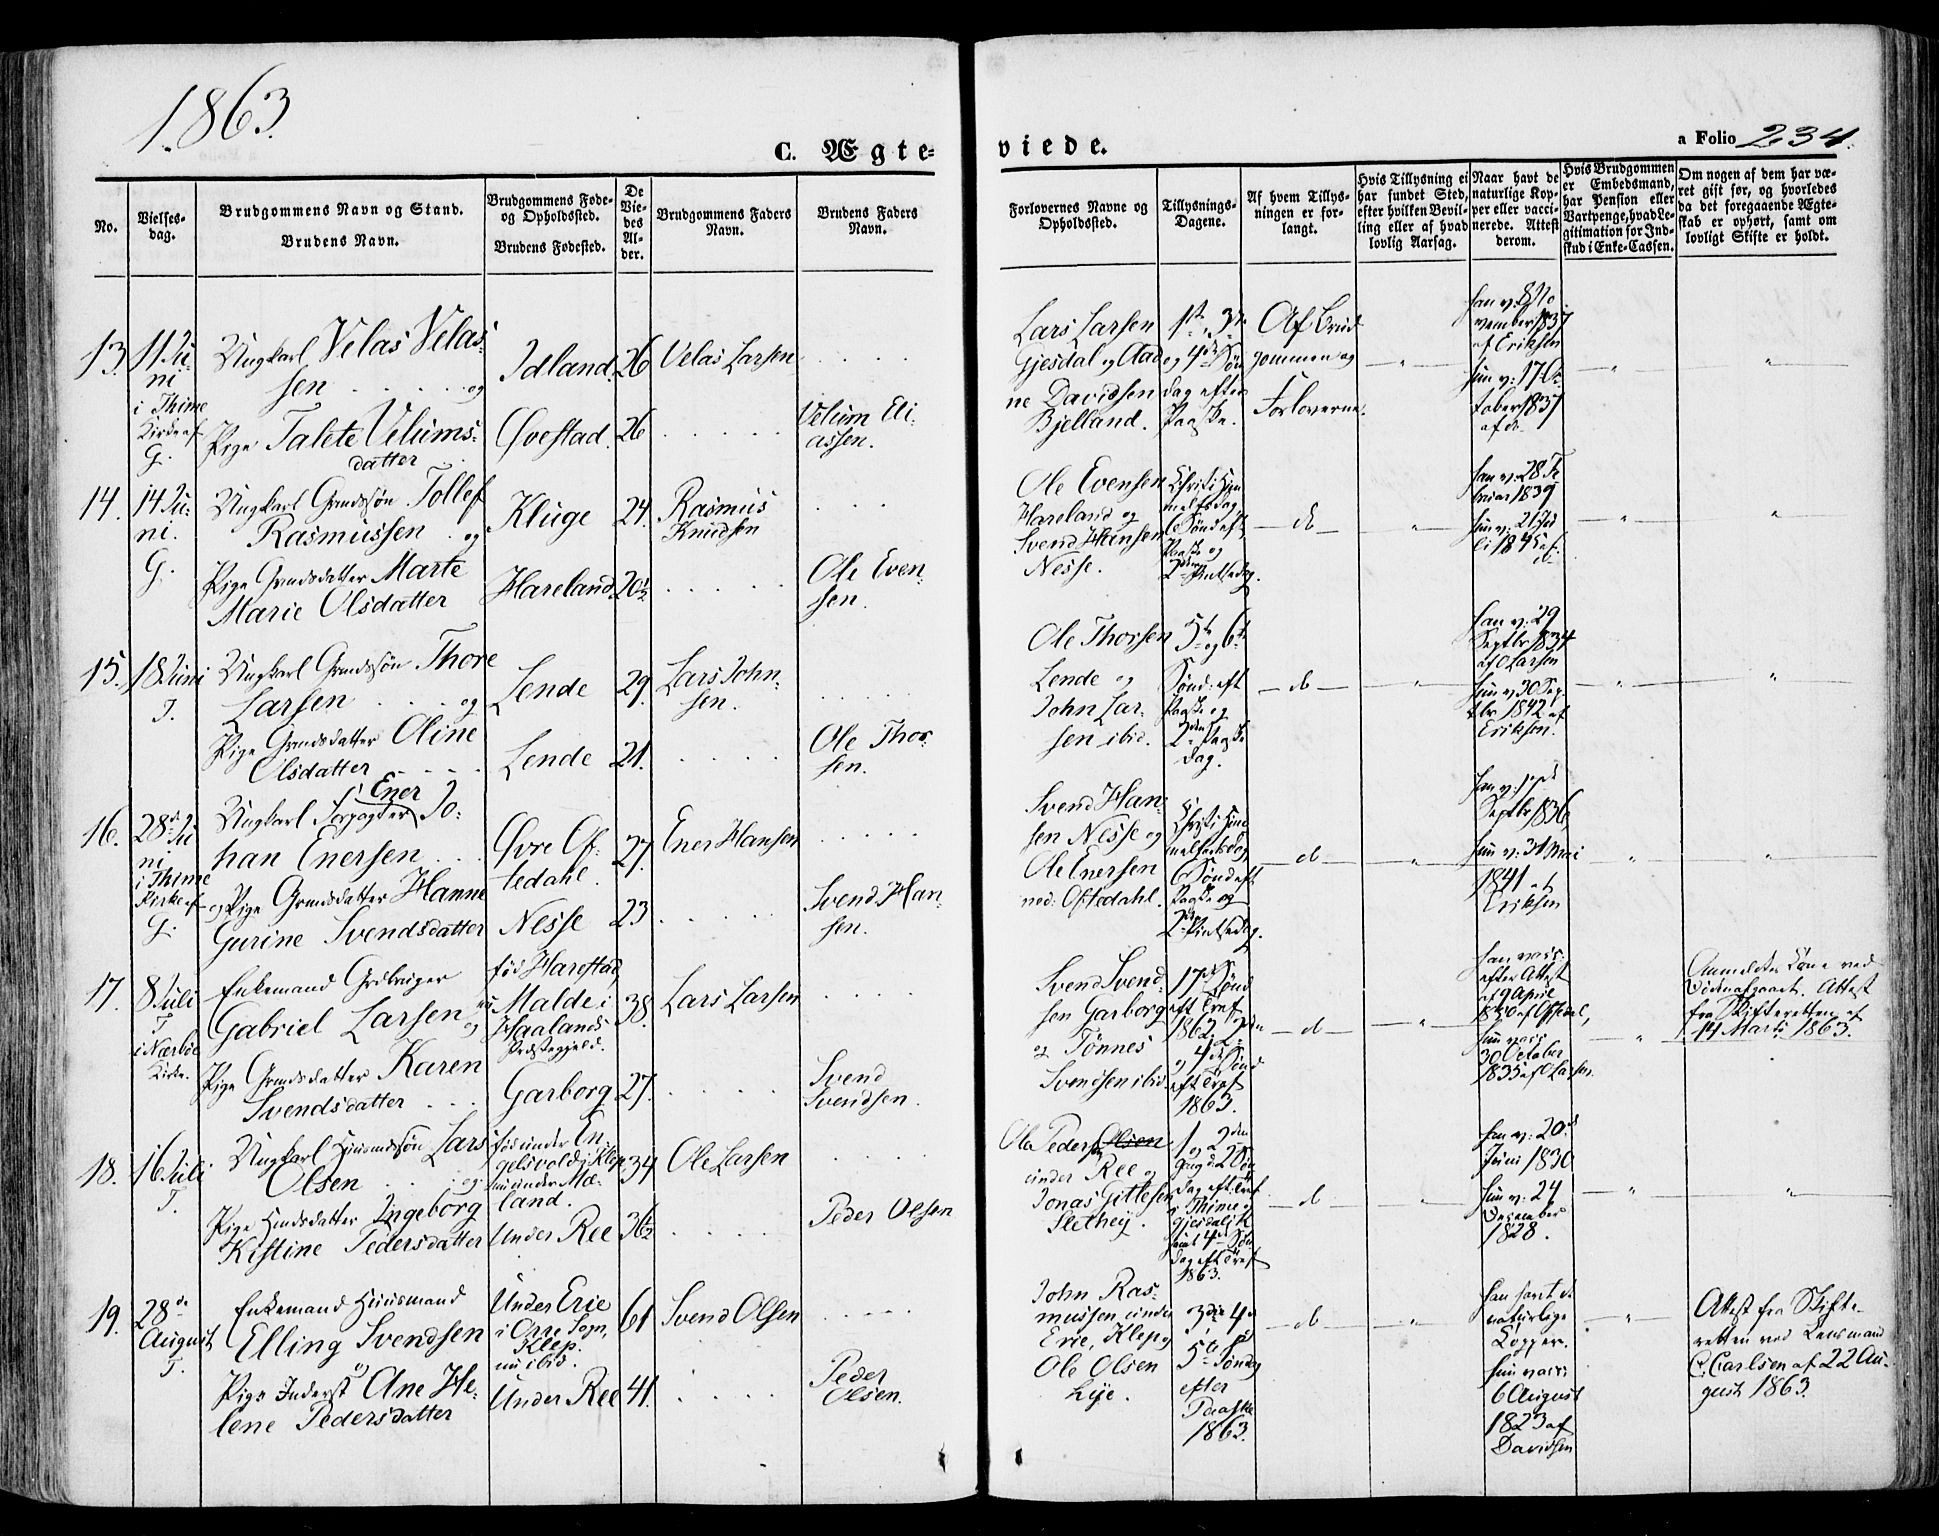 1863.
C. Ægteviede.
a Folio 234.
No.
Vielsesdag.
Brudgommens Navn og Stand.
Brudens Navn.
Brudgommens Føde- og Opholdssted.
Brudens Fødested.
De Viedes Alder.
Brudgommens Faders Navn.
Brudens Faders Navn.
Forlovernes Navne og Opholdssted.
Tillysnings-Dagene.
Af hvem Tillysningen er forlangt.
Hvis Tillysning ei har fundet Sted, efter hvilken Bevilling eller af hvad lovlig Aarsag.
Naar havt de naturlige Kopper eller vaccinerede. Attest derom.
Hvis Brudgommen er Embedsmand, har Pension eller Vartpenge, hvad Legitimation for Indskud i Enke-Cassen.
Om nogen af dem har været gift før, og hvorledes da det foregaaende Ægteskab er ophørt, samt om lovligt Skifte er holdt.
13.
11 Juni
i Thime
Kirke af
G.
Ungkarl Velas Velas-
sen og
Pige Talete Velums-
datter
Idland.
Øvestad.
26
26
Velas Larsen
Velum Eli-
assen.
Lars Larsen
Gjesdal og Aad-
ne Davidsen
Bjelland.
1ste, 3die
og 4de Søn-
dag efter
Paaske.
Af Brud-
gommen og
Forloverne.
han v: 8 No-
vember 1837
af Eriksen
hun v: 17 Oc-
tober 1837
af do
14.
14 Ju-
ni.
G.
Ungkarl Grmdssøn Tollef
Rasmussen og
Pige Grmdsdatter Marte
Marie Olsdatter
Kluge
Hareland
24.
20½
Rasmus
Knudsen
Ole Even-
sen.
Ole Evensen
Hareland og
Svend Hansen
Nesse.
Christi Him-
melfartsdag,
6 Sønd eft
Paaske og
2den Pintsedag.
do
han v: 28 Fe-
bruar 1839
hun v: 21 Ju-
li 1845 af
15.
18 Juni
T.
Ungkarl Grmdssøn Thore
Larsen og
Pige Grmdsdatter Oline
Olsdatter
Lende
Lende
29.
21.
Lars John-
sen.
Ole Thor-
sen.
Ole Thorsen
Lende og
John Lar-
sen ibid.
5te og 6te
Sønd: eft
Paaske og
2den Paaske
dag.
do
han v: 29
Septbr 1834
af Larsen
hun v: 30 Sep-
tbr 1842 af
Eriksen.
16.
28de Ju-
ni
i Thime
Kirke af
G.
Ungkarl Forpagter Ener Jo-
han Enersen
og Pige Grmdsdatter Hanne
Gurine Svendsdatter
Øvre Of-
tedahl.
Nesse
27.
23
Ener Hansen
Svend Han-
sen.
Svend Han-
sen Nesse og
Ole Enersen
ned: Oftedahl.
Christi Him-
melfartsdag
6 Sønd eft
Paaske og
2den Pintsedag.
do
han v: 17de
Septbr 1836
hun v: 31 Mai
1841 af
Eriksen
17.
8 Juli
T
i Nærbøe
Kirke.
Enkemand Grdbruger
Gabriel Larsen og
Pige Grmdsdatter Karen
Svendsdatter
fød Harestad
nu Malde i
Haalands
Præstegjeld.
Garborg
38.
27.
Lars Larsen
Svend
Svendsen.
Svend Svend-
sen Garborg
og Tønnes
Svendsen ibid.
17de Sønd
eft Tref
1862, 2den
og 4de Sønd
eft Tref
1863.
do
han vacc.
efter Attest
af 9 April
hun vacc
30 October
1835 af Larsen.
Anmeldte Kone ved
Døden afgaaet. Attest
fra Skifteretten af
14 Marts 1863.
18.
16 Juli
T.
Ungkarl Huusmdssøn Lars
Olsen og
Pige Hmdsdatter Ingeborg
Kistine Pedersdatter
fød under En-
gelsvold i Klep
nu under Mæ-
land.
Under Ree
34
36½
Ole Larsen
Peder Olsen
Ole Pedersen Olsen
under Ree og
Jonas Gittlesen
Slethey.
1 og 2den
Gang d 2 Søn-
dag eft. Tref
i Thime og
Gjesdal K
samt 4de Søn-
dag eft Tref
1863.
do
han v: 20de
Juni 1830
hun v: 24
December
1828.
19.
28de
August
T.
Enkemand Huusmand
Elling Svendsen
og
Pige Inderst Ane He-
lene Pedersdatter
Under Erie
i Orre Sogn,
Klep.
nu ibid.
Under Ree
61
41.
Svend Olsen
Peder
Olsen.
John Ras-
mussen under
Erie, Klep og
Ole Olsen
Lye.
3die 4de
5te Søndag
efter
Paaske
1863.
do
han havt de
naturlige
Kopper.
hun vacc:
6 August
1823 af
Davidsen
Attest fra Skifte-
retten ved Lensmand
C. Carlsen af 22 Au-
gust 1863.